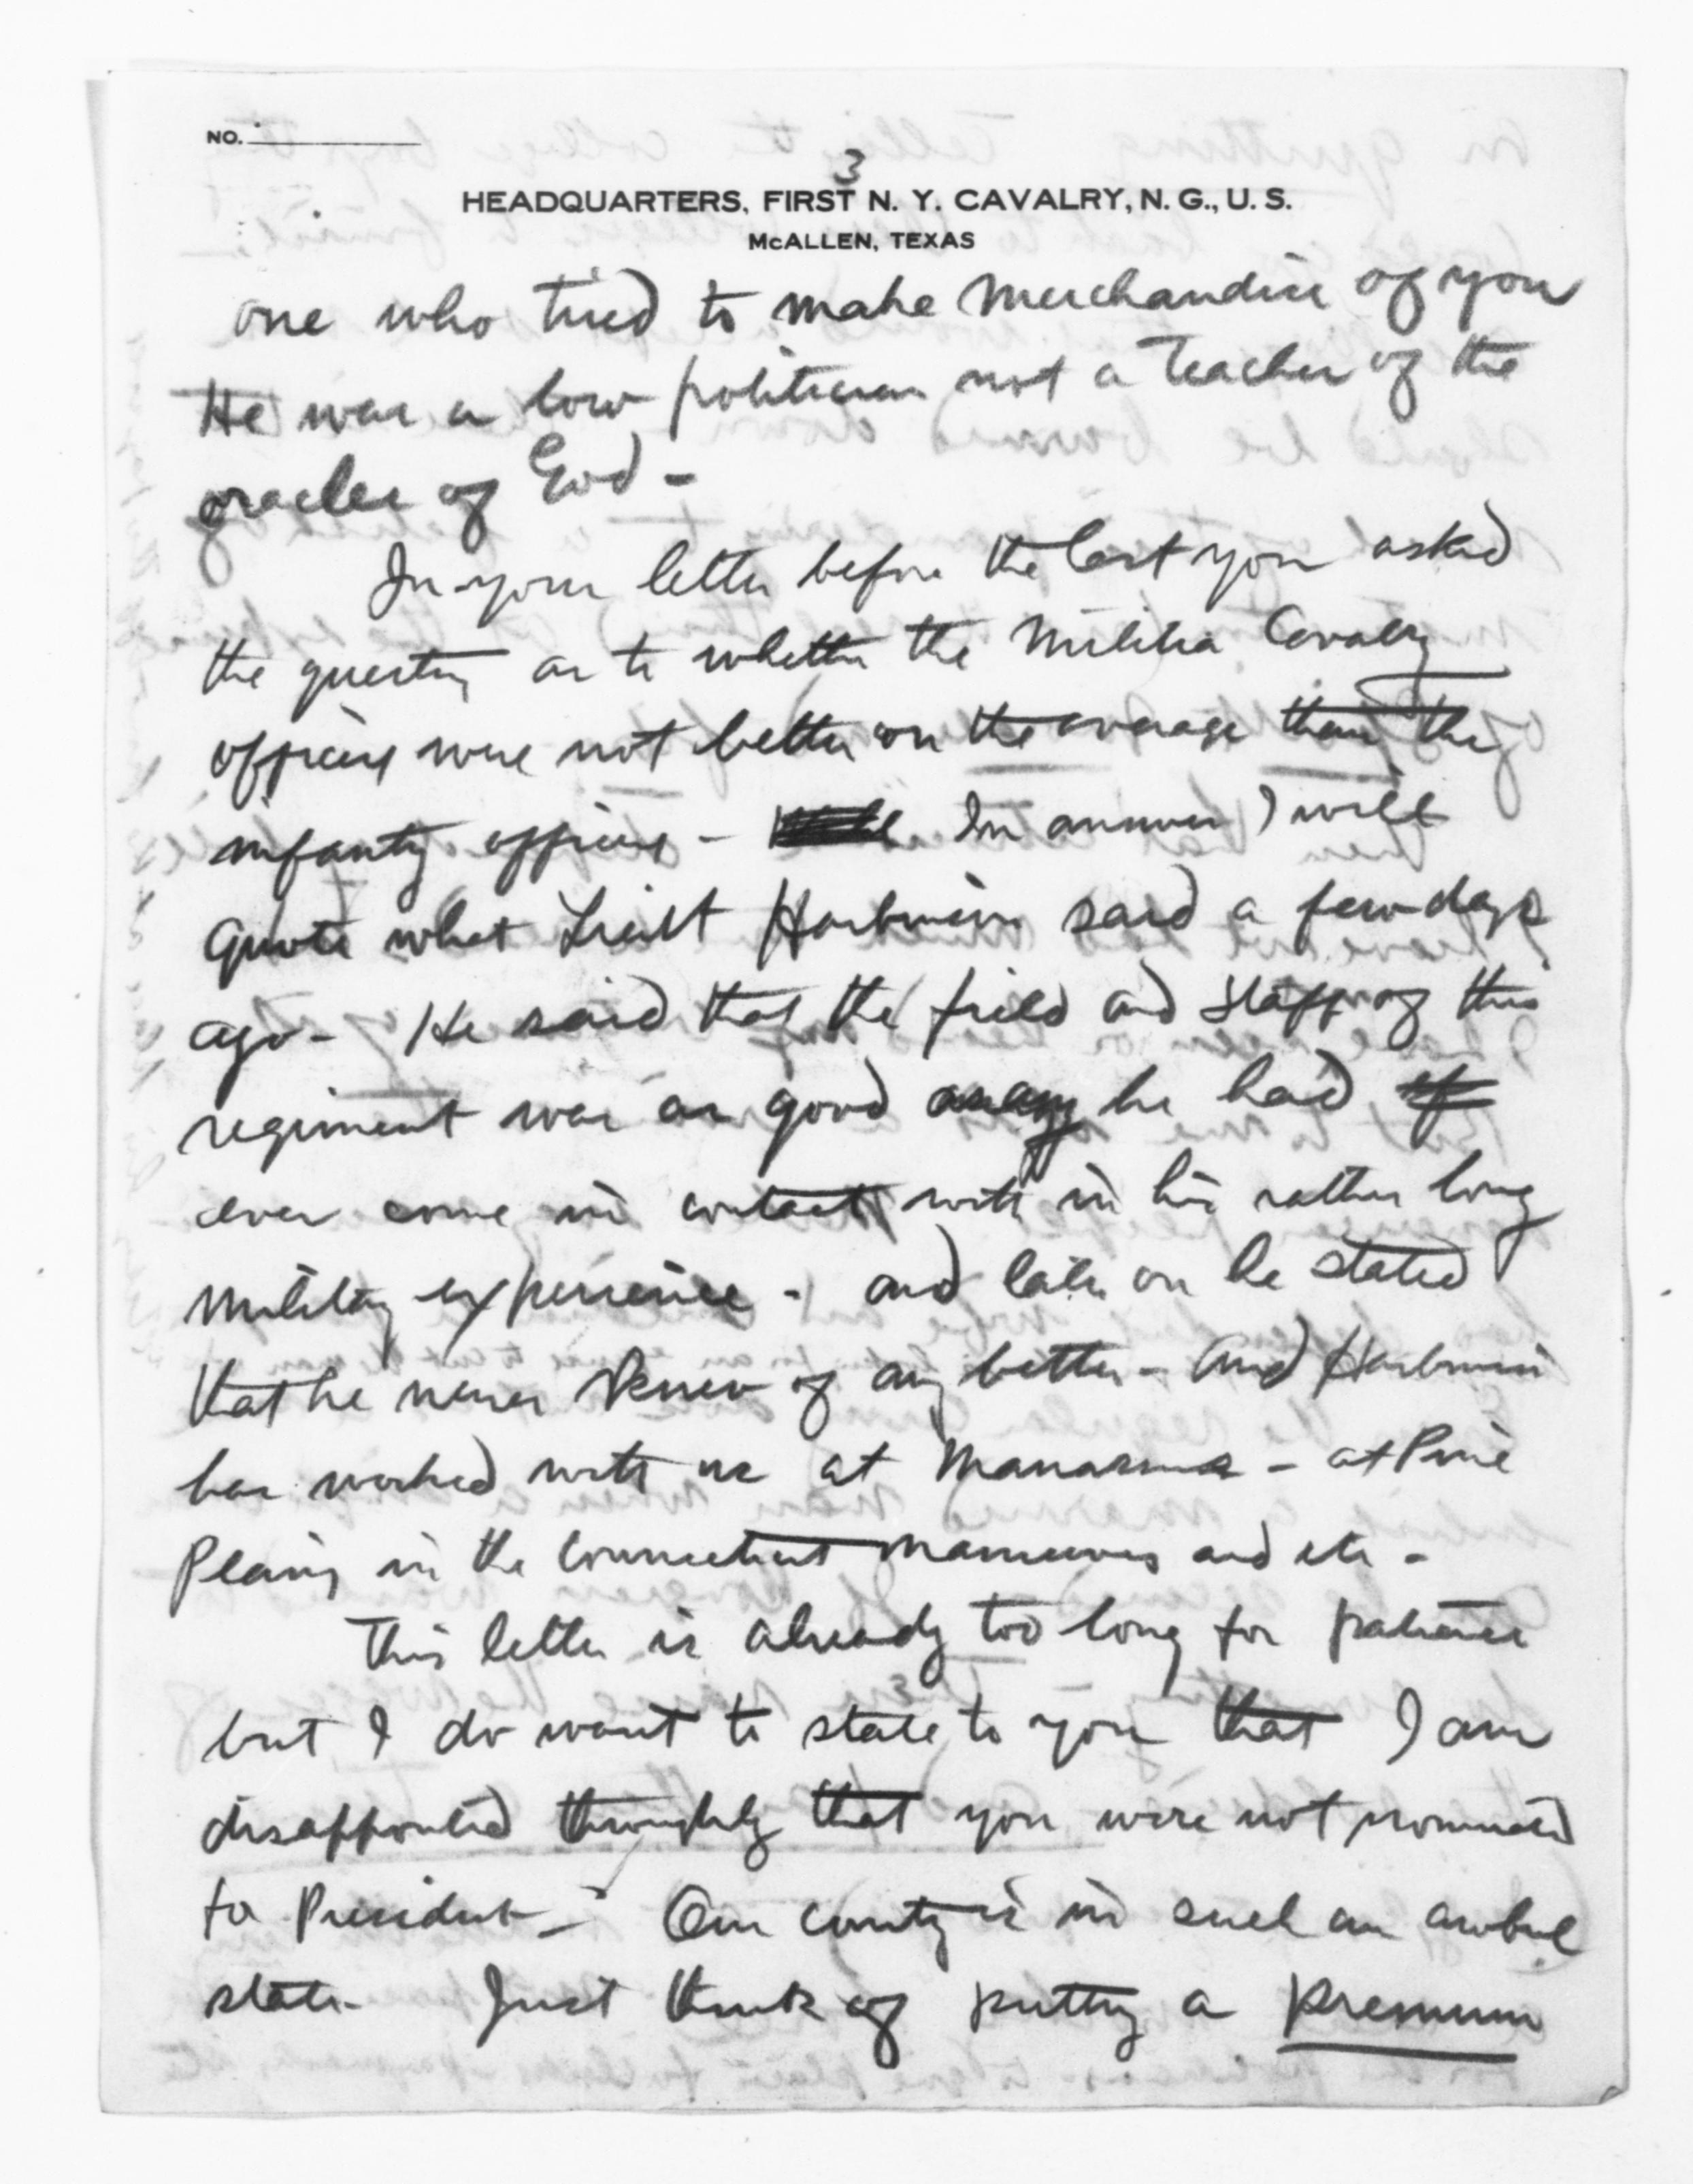 NO.
3
HEADQUARTERS, FIRST N. Y. CAVALRY, N. G., U. S.
McALLEN, TEXAS
one who tried to make Merchandise of you
He was a low politician not a Teacher of the
oracles of God -
In your letter before the last you asked
the question as to whether the Militia Cavalry
officers were not better on the average than the
infantry officers - In answer I will
quote what Lieut said a few days
ago - He said that the field and staff of this
regiment was as good as any he had
ever come in contact with in his rather long
Military experience - and later on he stated
that he never knew of any better - And
has worked with us at Manassas - at Pine
Plains in the Connecticut Manuevers and etc -
This letter is already too long for patience
but I do want to state to you that I am
disappointed throughly that you were not nominated
for President - Our country is in such an awful
state - Just think of putting a premium